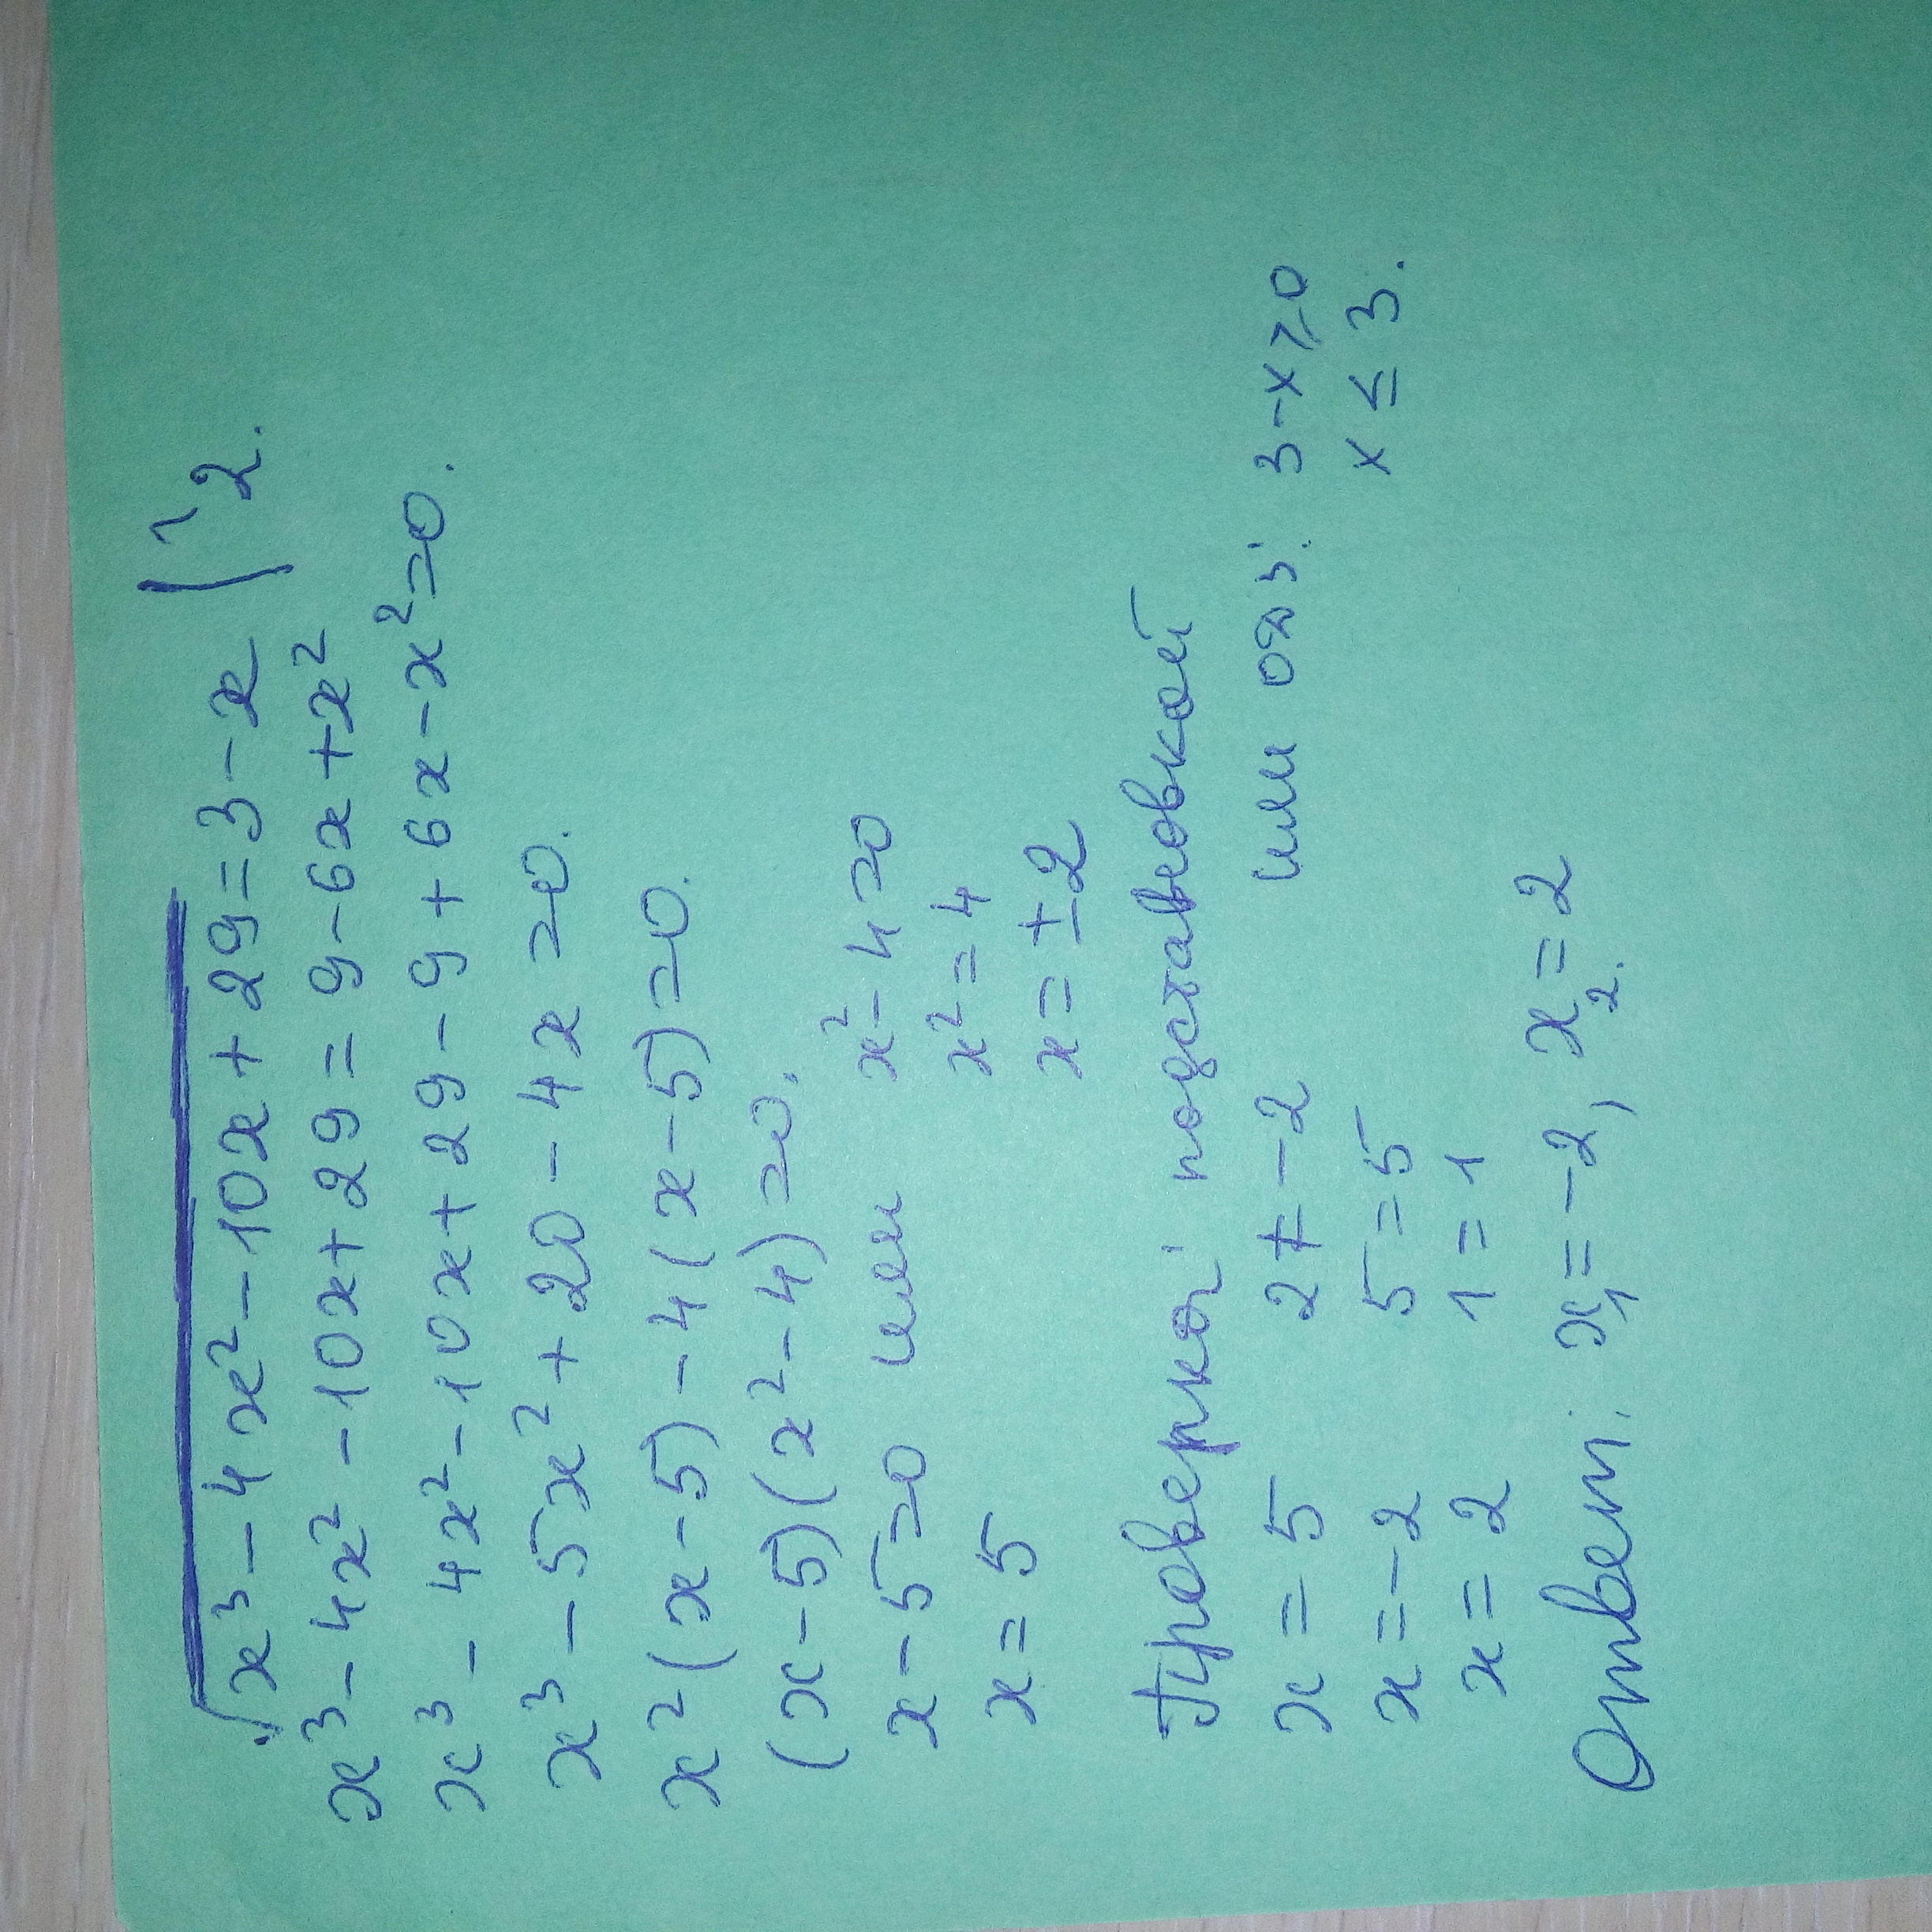 √x³ - 4x² - 10x + 29 = 3 - x |↑2.
x³ - 4x² - 10x + 29 = 9 - 6x + x²
x³ - 4x² - 10x + 29 - 9 + 6x - x² = 0.
x³ - 5x² + 20 - 4x = 0.
x²(x - 5) - 4(x - 5) = 0.
(x - 5)(x² - 4) = 0.
x - 5 = 0 или x² - 4 = 0
x = 5 x² = 4
x = ± 2
Проверка: подстановкой
x = 5 2 ≠ -2 или ОДЗ: 3 - x ≥ 0
x = -2 5 = 5 x ≤ 3.
x = 2 1 = 1
Ответ: x₁ = -2, x₂ = 2